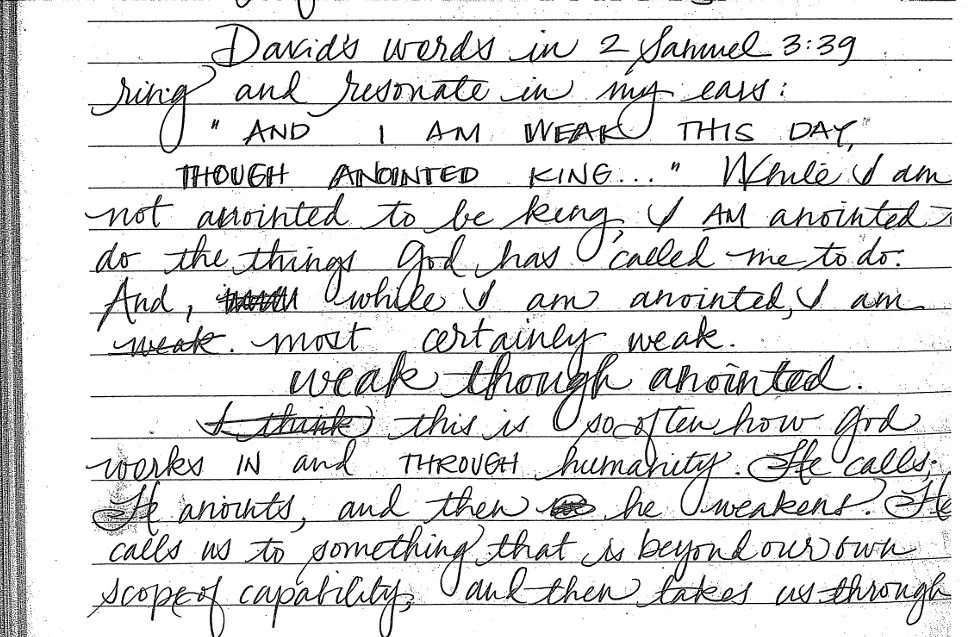 David's words in 2 Samuel 3:39
ring and resonate in my ears:
"AND I AM WEAK THIS DAY,
THOUGH ANOINTED KING..." While I am
not anointed to be king, I AM anointed
do the things God has called me to do.
And, while I am anointed, I am
weak. most certainly weak.
weak though anointed.
I think this is so often how God
works IN and THROUGH humanity. He calls,
He anoints, and then he weakens. He
calls us to something that is beyond our own
scope of capability, and then takes us through